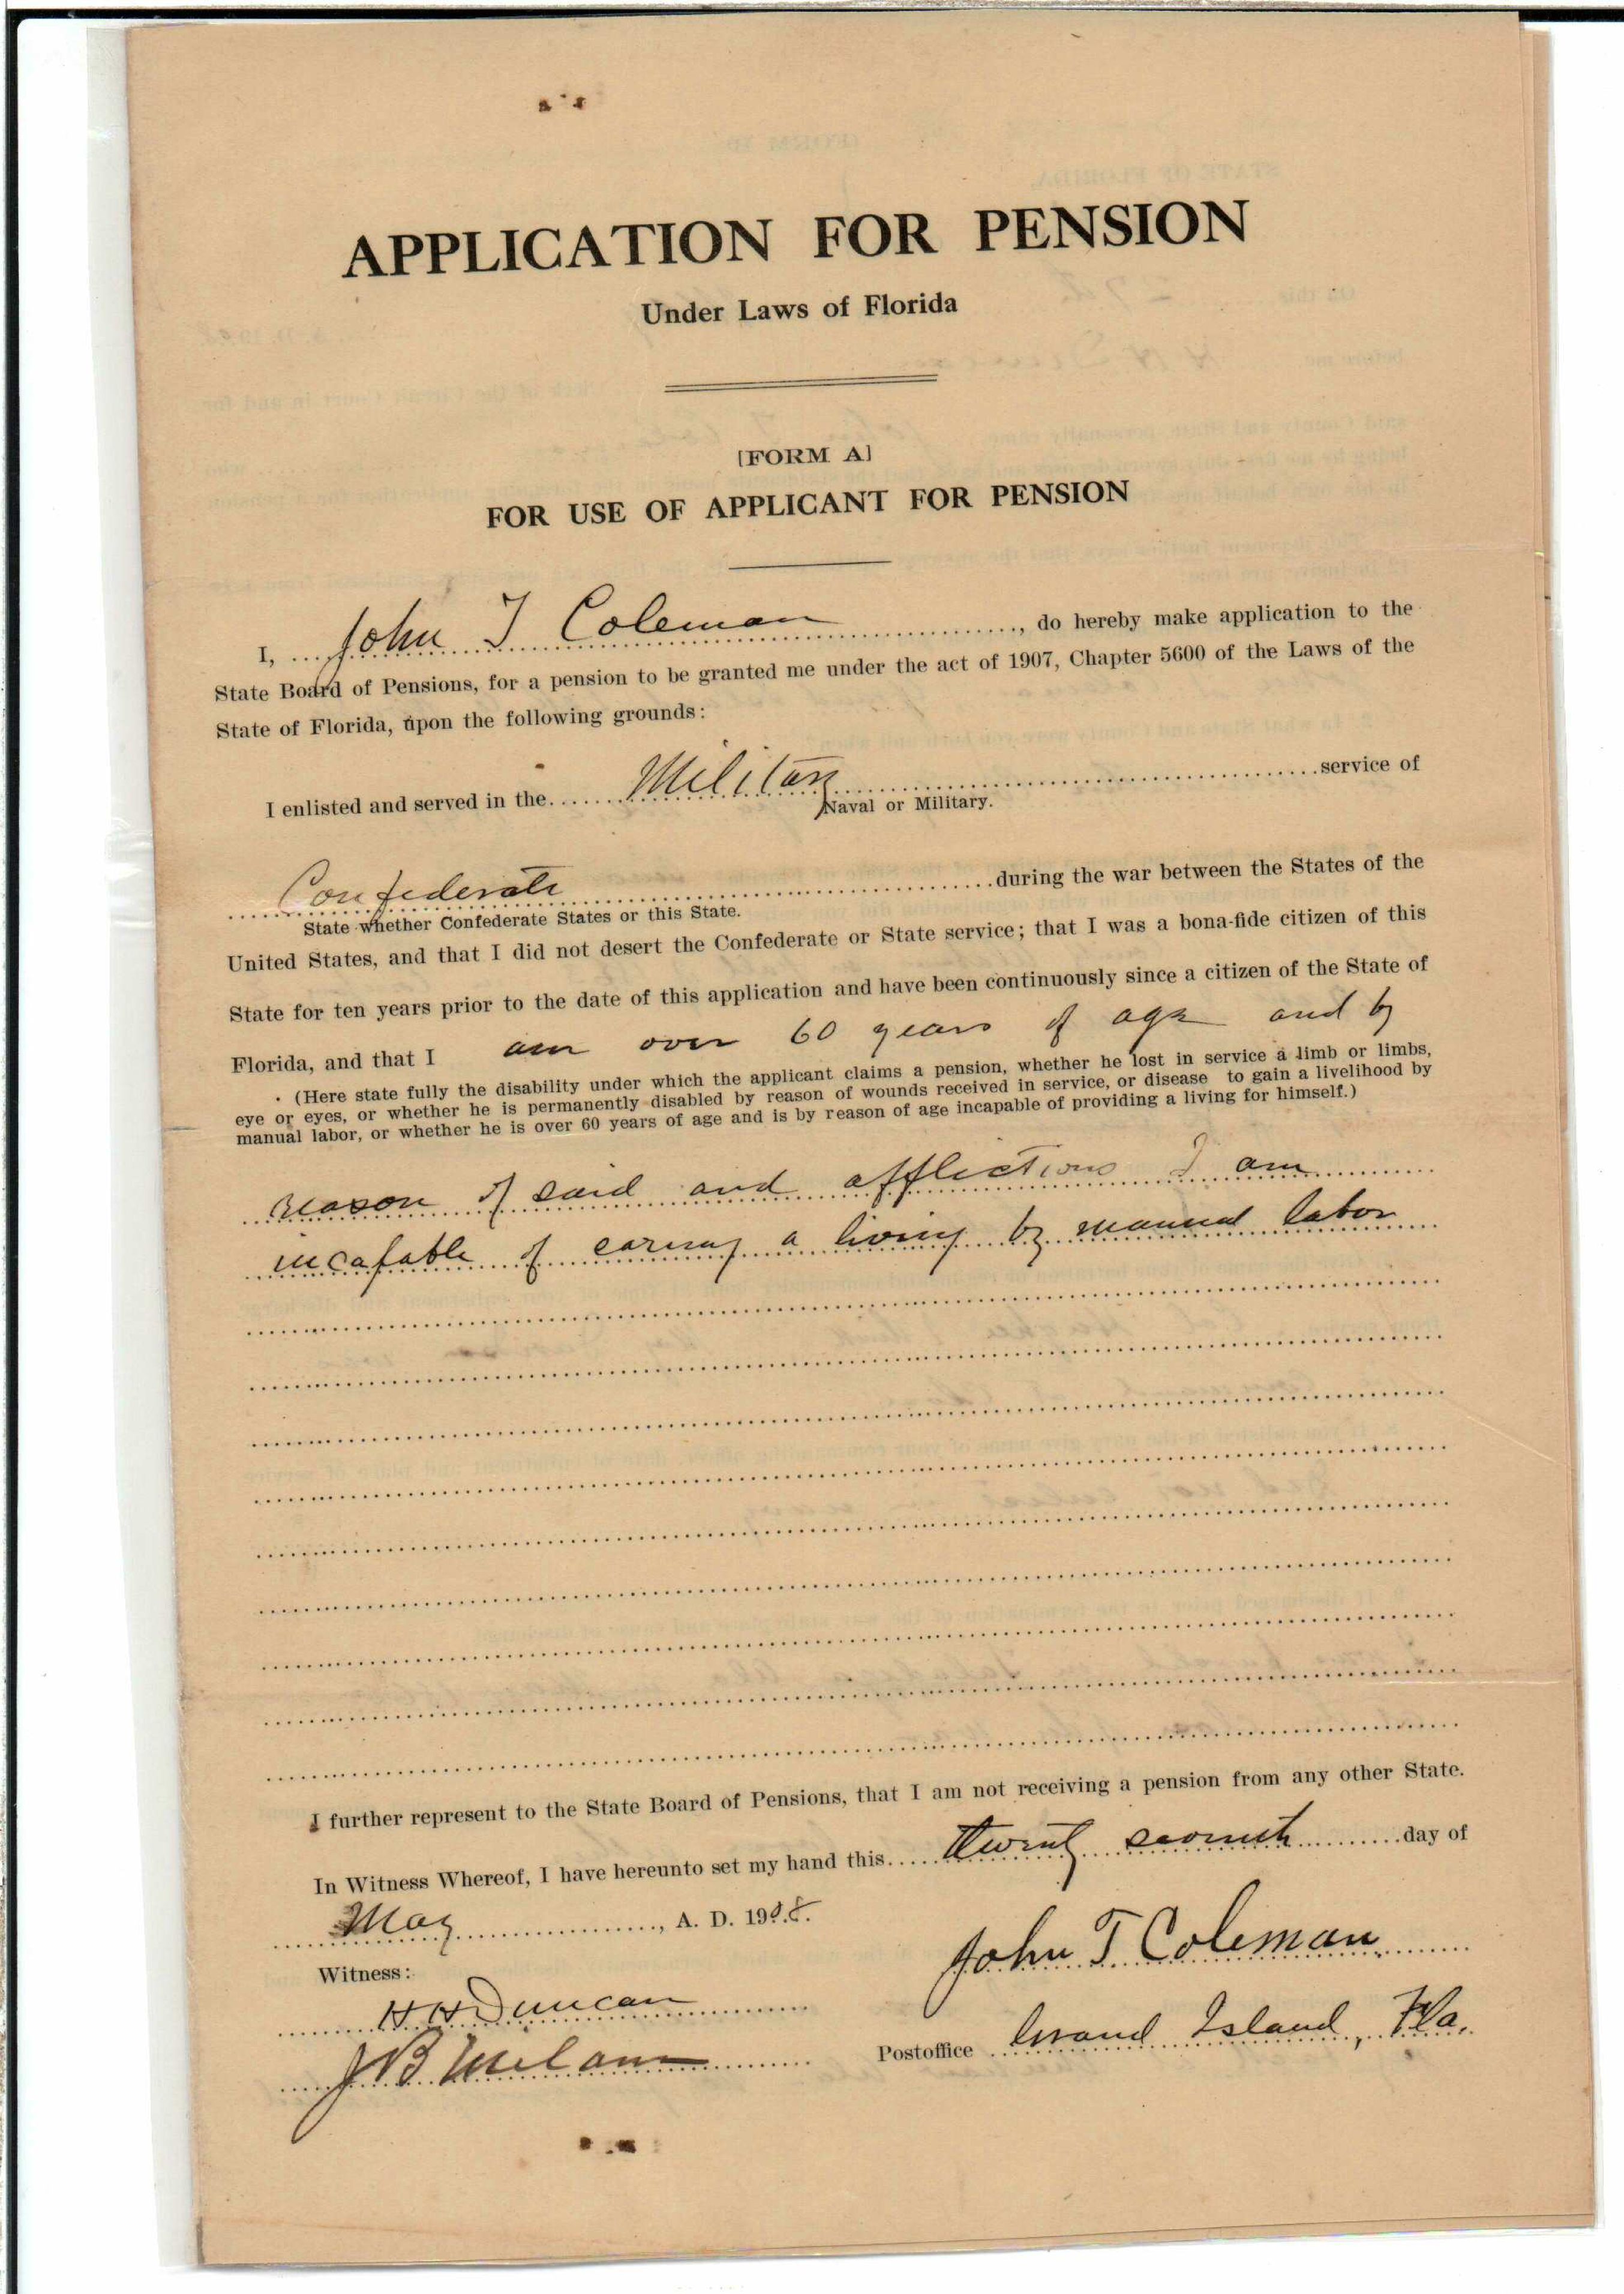 APPLICATION FOR PENSION
Under Laws of Florida
[FORM A]
FOR USE OF APPLICANT FOR PENSION
I, John T Coleman, do hereby make application to the
State Board of Pensions, for a pension to be granted me under the act of 1907, Chapter 5600 of the Laws of the
State of Florida, upon the following grounds:
I enlisted and served in the Military service of
Naval or Military.
Confederate during the war between the States of the
State whether Confederate States or this State.
United States, and that I did not desert the Confederate or State service; that I was a bona-fide citizen of this
State for ten years prior to the date of this application and have been continuously since a citizen of the State of
Florida, and that I am over 60 years of age and by
(Here state fully the disability under which the applicant claims a pension, whether he lost in service a limb or limbs,
eye or eyes, or whether he is permanently disabled by reason of wounds received in service, or disease to gain a livelihood by
manual labor, or whether he is over 60 years of age and is by reason of age incapable of providing a living for himself.)
reason of said and afflictions I am
incapable of earning a living by manual labor
I further represent to the State Board of Pensions, that I am not receiving a pension from any other State.
In Witness Whereof, I have hereunto set my hand this twenty seventh day of
May, A. D. 1908.
John T Coleman
Witness:
H H Duncan
Postoffice Grand Island, Fla.
J B Milam